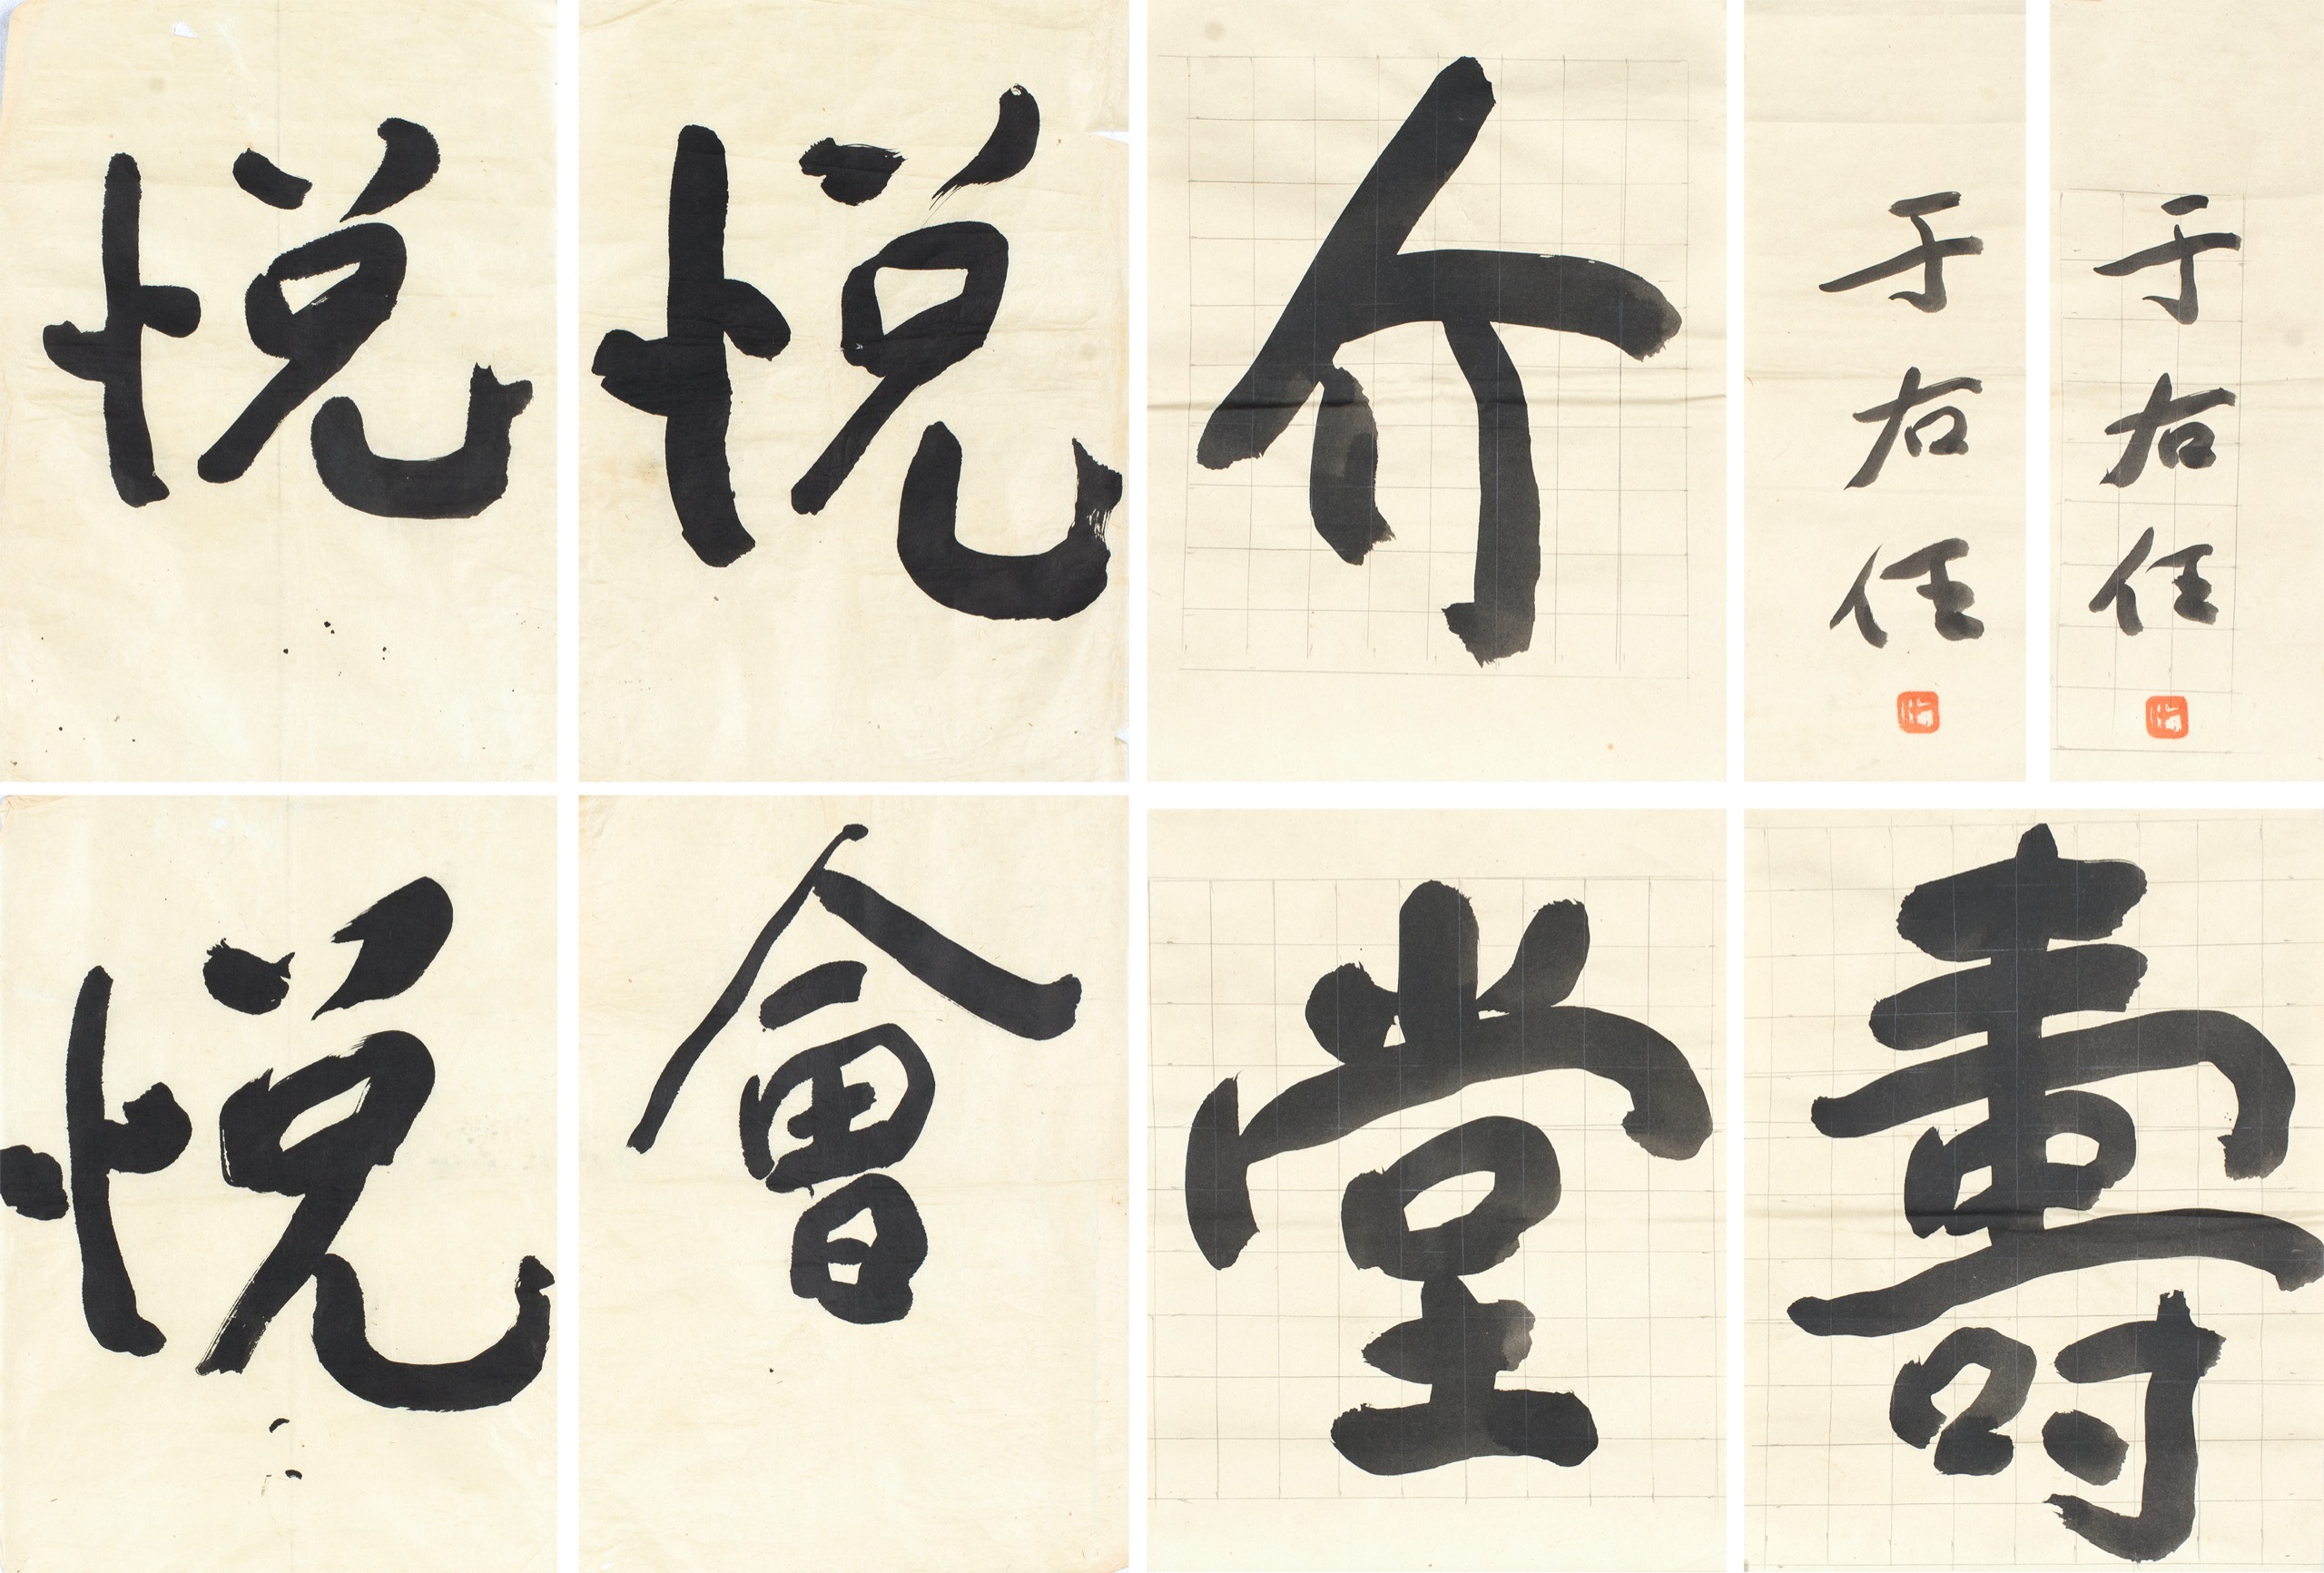 悦
悦
介
于右任
于右任
悦
會
堂
壽